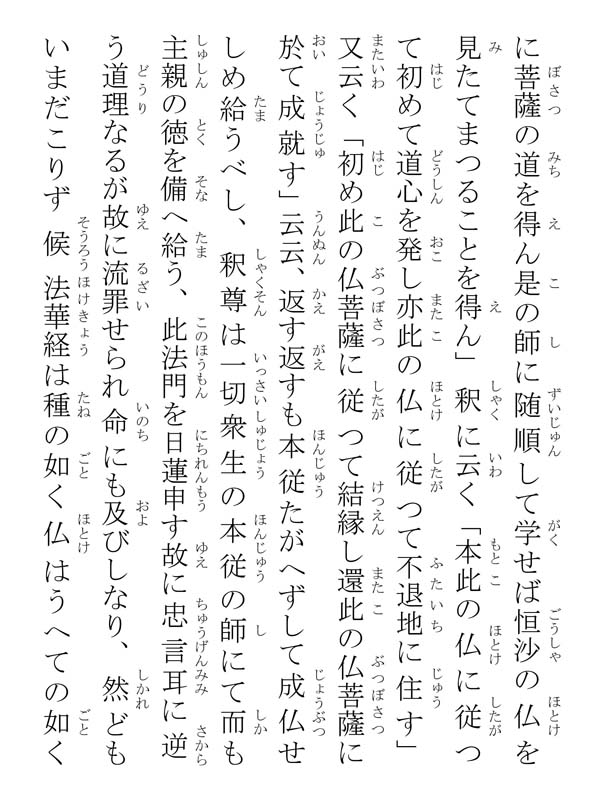 に菩薩の道を得ん是の師に随順して学せば恒沙の仏を
見たてまつることを得ん」釈に云く「本此の仏に従つ
て初めて道心を発し亦此の仏に従つて不退地に住す」
又云く「初め此の仏菩薩に従つて結縁し還此の仏菩薩に
於て成就す」云云、返す返すも本従たがへずして成仏せ
しめ給うべし、釈尊は一切衆生の本従の師にて而も
主親の徳を備へ給う、此法門を日蓮申す故に忠言耳に逆
う道理なるが故に流罪せられ命にも及びしなり、然ども
いまだこりず候法華経は種の如く仏はうへての如く